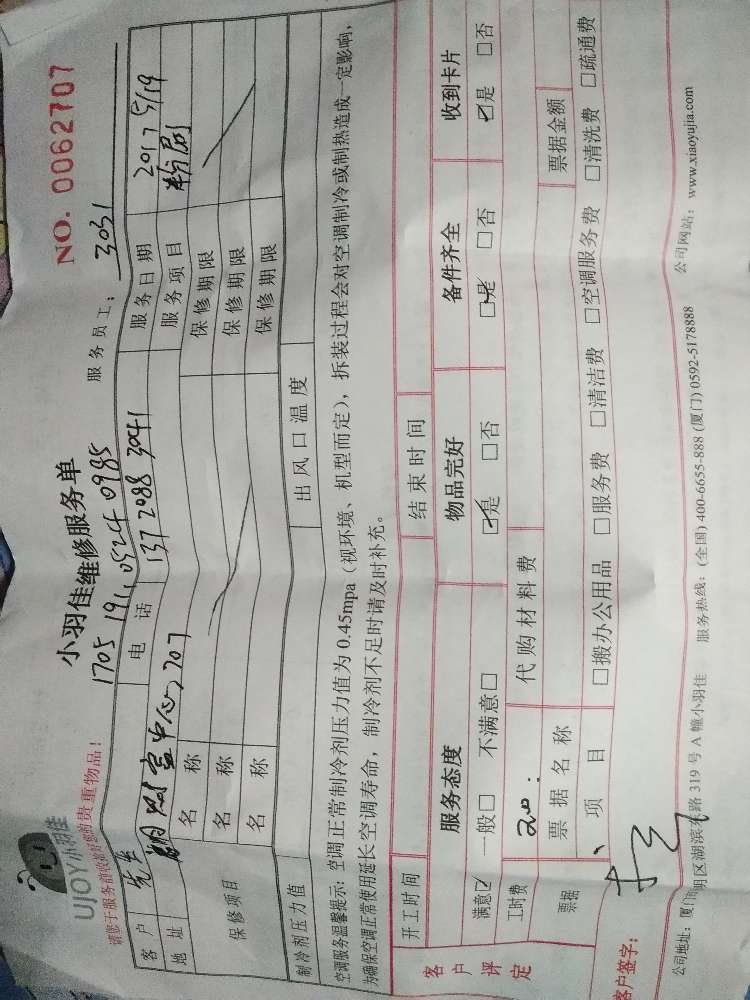 UJOY小羽佳
小羽佳维修服务单
NO. 0062707
请您于服务前收拾好您的贵重物品！
1705 1911 0524 0985
服务员工： 3031
客户
电话 137 2088 3041
服务日期 2017 5/19
地址 707
服务项目
保修项目
名称 保修期限
名称 保修期限
名称 保修期限
制冷剂压力值 出风口温度
空调服务温馨提示：空调正常制冷剂压力值为 0.45mpa（视环境、机型而定），拆装过程会对空调制冷或制热造成一定影响，
为确保空调正常使用延长空调寿命，制冷剂不足时请及时补充。
开工时间 结束时间
客户评定
服务态度 物品完好 备件齐全 收到卡片
满意☑ 一般□ 不满意□ ☑是 □否 ☑是 □否 ☑是 □否
工时费 200 代购材料费
票据 票据名称 票据金额
项目 □搬办公用品 □服务费 □清洁费 □空调服务费 □清洗费 □疏通费
客户签字：
公司地址：厦门市 明区湖滨东路 319 号 A 幢小羽佳 服务热线：(全国) 400-6655-888 (厦门) 0592-5178888 公司网站：www.xiaoyujia.com